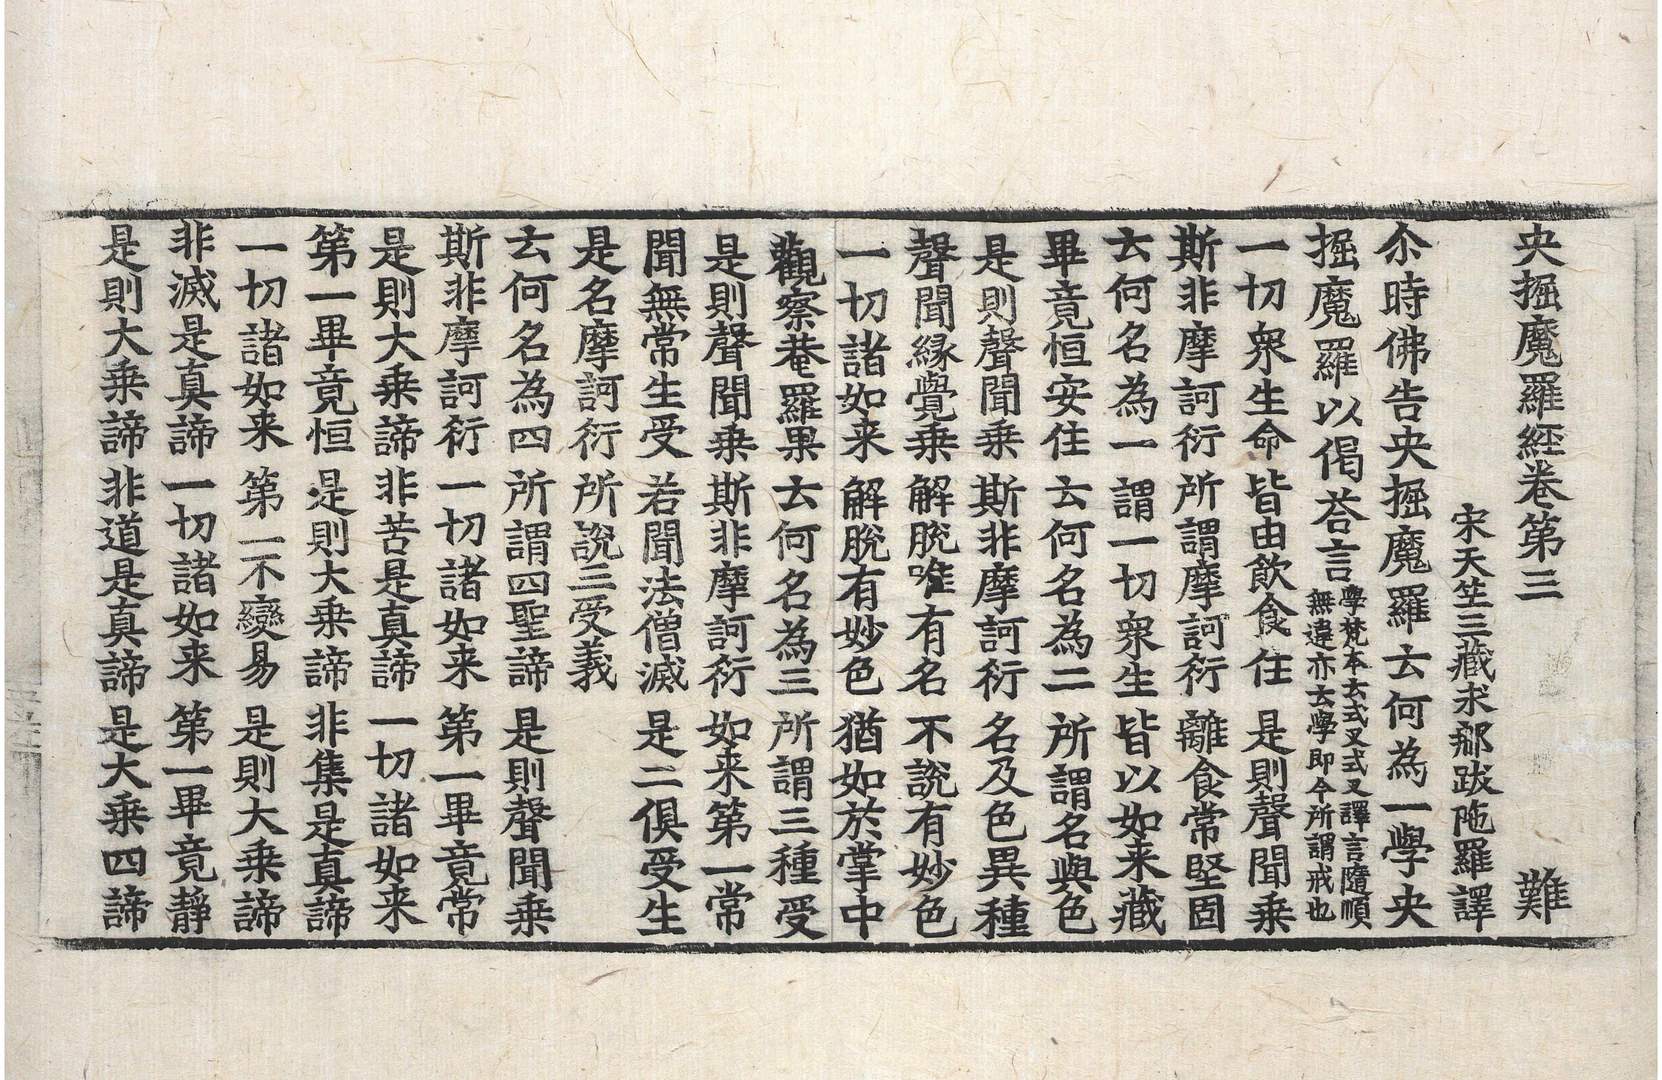 央掘魔羅經卷第三 難
宋天竺三藏求那跋陁羅譯
尒時佛告央掘魔羅云何為一學央
掘魔羅以偈荅言學梵本云式叉式叉譯言隨順無違亦云學即今所謂戒也
一切衆生命 皆由飲食住 是則聲聞乘
斯非摩訶衍 所謂摩訶衍 離食常堅固
云何名為一 謂一切衆生 皆以如来藏
畢竟恒安住 云何名為二 所謂名與色
是則聲聞乗 斯非摩訶衍 名及色異種
聲聞縁覺乗 解脫唯有名 不說有妙色
一切諸如来 解脫有妙色 猶如於掌中
觀察菴羅果 云何名為三 所謂三種受
是則聲聞乗 斯非摩訶衍 如来第一常
聞無常生受 若聞法僧滅 是二俱受生
是名摩訶衍 所說三受義
云何名為四 所謂四聖諦 是則聲聞乗
斯非摩訶衍 一切諸如来 第一畢竟常
是則大乗諦 非苦是真諦 一切諸如来
第一畢竟恒 是則大乗諦 非集是真諦
一切諸如来 第一不變易 是則大乗諦
非滅是真諦 一切諸如来 第一畢竟靜
是則大乗諦 非道是真諦 是大乗四諦